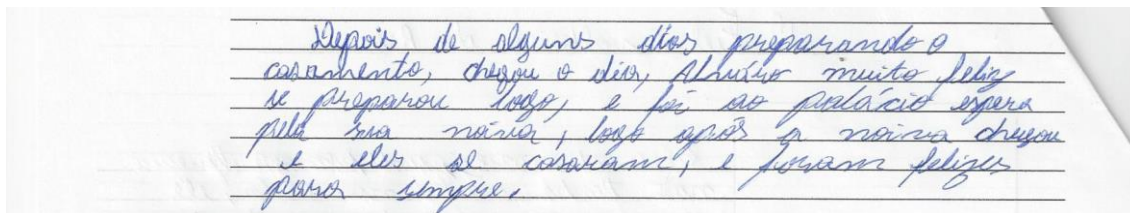 Depois de alguns dias preparando o
casamento, chegou o dia, Alváro muito feliz
se preparou logo, e foi ao palácio espera
pela sua noiva, logo após a noiva chegou
e eles se casaram, e foram felizes
para sempre.